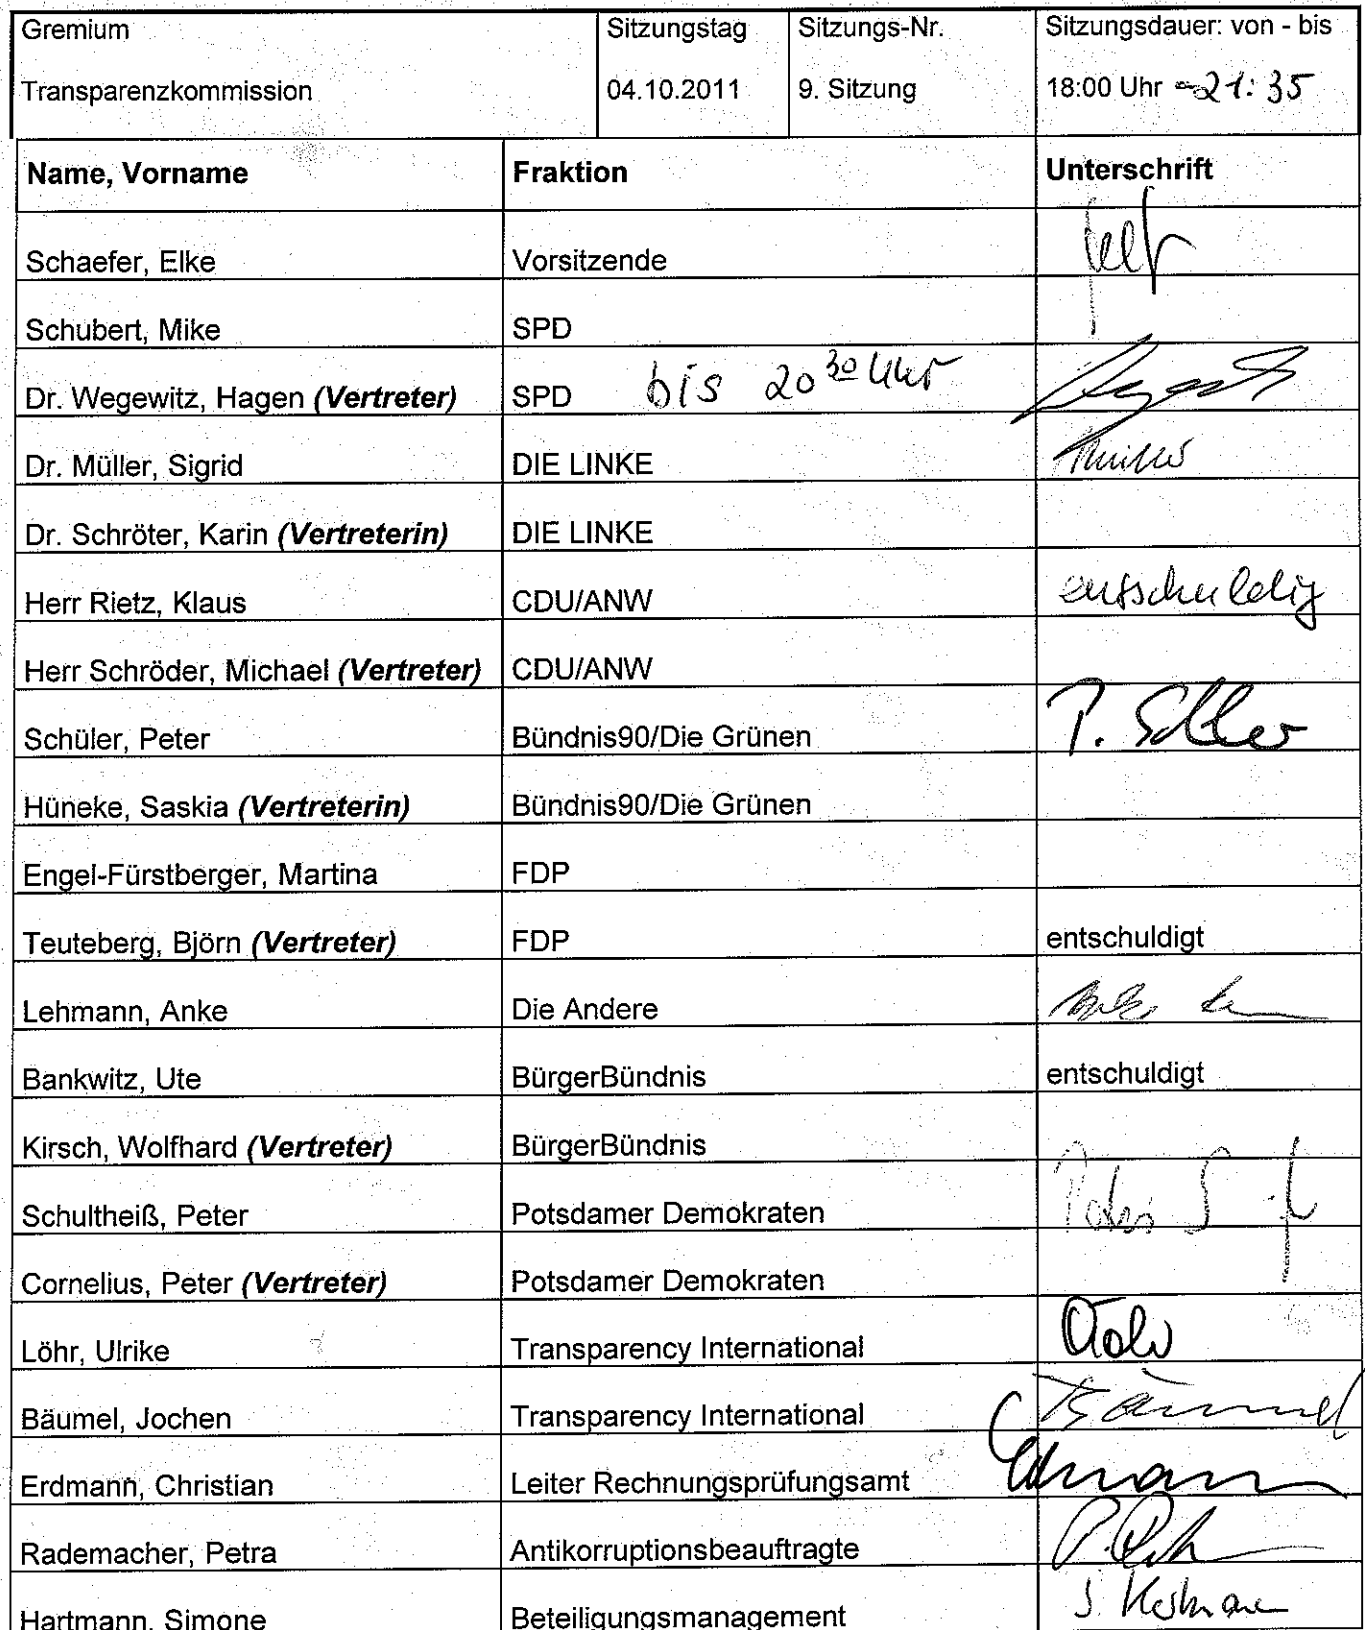 Gremium Sitzungstag Sitzungs-Nr. Sitzungsdauer: von - bis
Transparenzkommission 04.10.2011 9. Sitzung 18:00 Uhr -21:35
Name, Vorname Fraktion Unterschrift
Schaefer, Elke Vorsitzende
Schubert, Mike SPD
Dr. Wegewitz, Hagen (Vertreter) SPD bis 20 30 Uhr
Dr. Müller, Sigrid DIE LINKE
Dr. Schröter, Karin (Vertreterin) DIE LINKE
Herr Rietz, Klaus CDU/ANW entschuldig
Herr Schröder, Michael (Vertreter) CDU/ANW
Schüler, Peter Bündnis90/Die Grünen
Hüneke, Saskia (Vertreterin) Bündnis90/Die Grünen
Engel-Fürstberger, Martina FDP
Teuteberg, Björn (Vertreter) FDP entschuldigt
Lehmann, Anke Die Andere
Bankwitz, Ute BürgerBündnis entschuldigt
Kirsch, Wolfhard (Vertreter) BürgerBündnis
Schultheiß, Peter Potsdamer Demokraten
Cornelius, Peter (Vertreter) Potsdamer Demokraten
Löhr, Ulrike Transparency International
Bäumel, Jochen Transparency International Bäumel
Erdmann, Christian Leiter Rechnungsprüfungsamt
Rademacher, Petra Antikorruptionsbeauftragte
Hartmann, Simone Beteiligungsmanagement